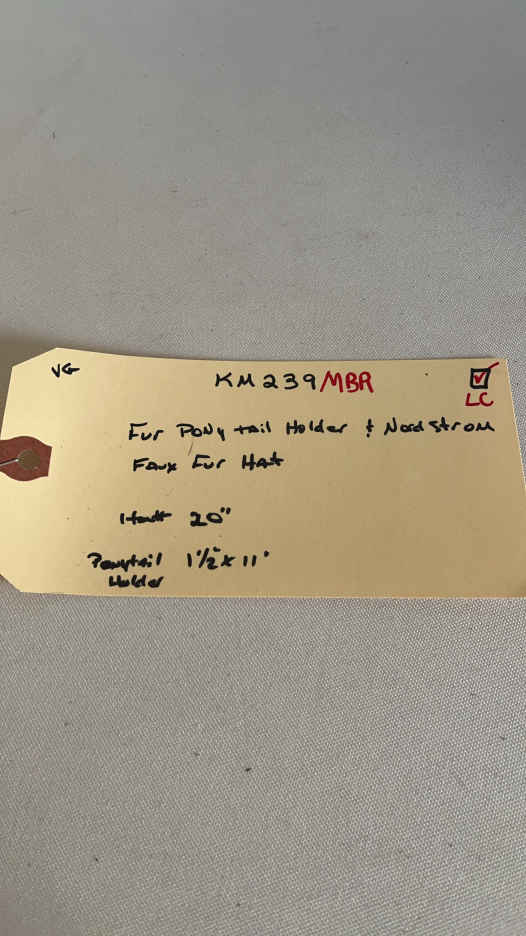 VG KM239/MBR ☑
LC
Fur Ponytail Holder & Nordstrom
Faux Fur Hat
Hat 20"
Ponytail 1 1/2" x 11"
Holder